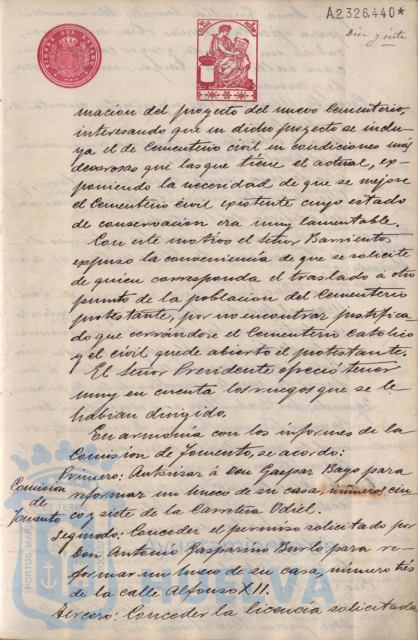 A.2.326.440*
Diez y siete
TIMBRE DEL ESTADO
macion del proyecto del nuevo Cementerio,
interesando que en dicho proyecto se inclu-
ya el de Cementerio civil en condiciones mas
decorosas que las que tiene el actual, ex-
poniendo la necesidad de que se mejore
el Cementerio civil existente cuyo estado
de conservacion era muy lamentable.
Con este motivo el Señor Barrientos
expuso la conveniencia de que se solicite
de quien corresponda el traslado a otro
punto de la poblacion del Cementerio
protestante, por no encontrar justifica
do que cerrándose el Cementerio Catolico
y el civil quede abierto el protestante.
El Señor Presidente ofreció tener
muy en cuenta los ruegos que se le
habian dirigido.
En armonía con los informes de la
Comision de Fomento, se acordo:
Comision
de
Fomento
Primero: Autorizar á Don Gaspar Bayo para
reformar un hueco de su casa, números cin
co y siete de la Carretera Odiel.
Segundo: Conceder el permiso solicitado por
Don Antonio Gasparino Burlo para re-
formar un hueco de su casa, número tres
de la calle Alfonso XII.
Tercero: Conceder la licencia solicitada